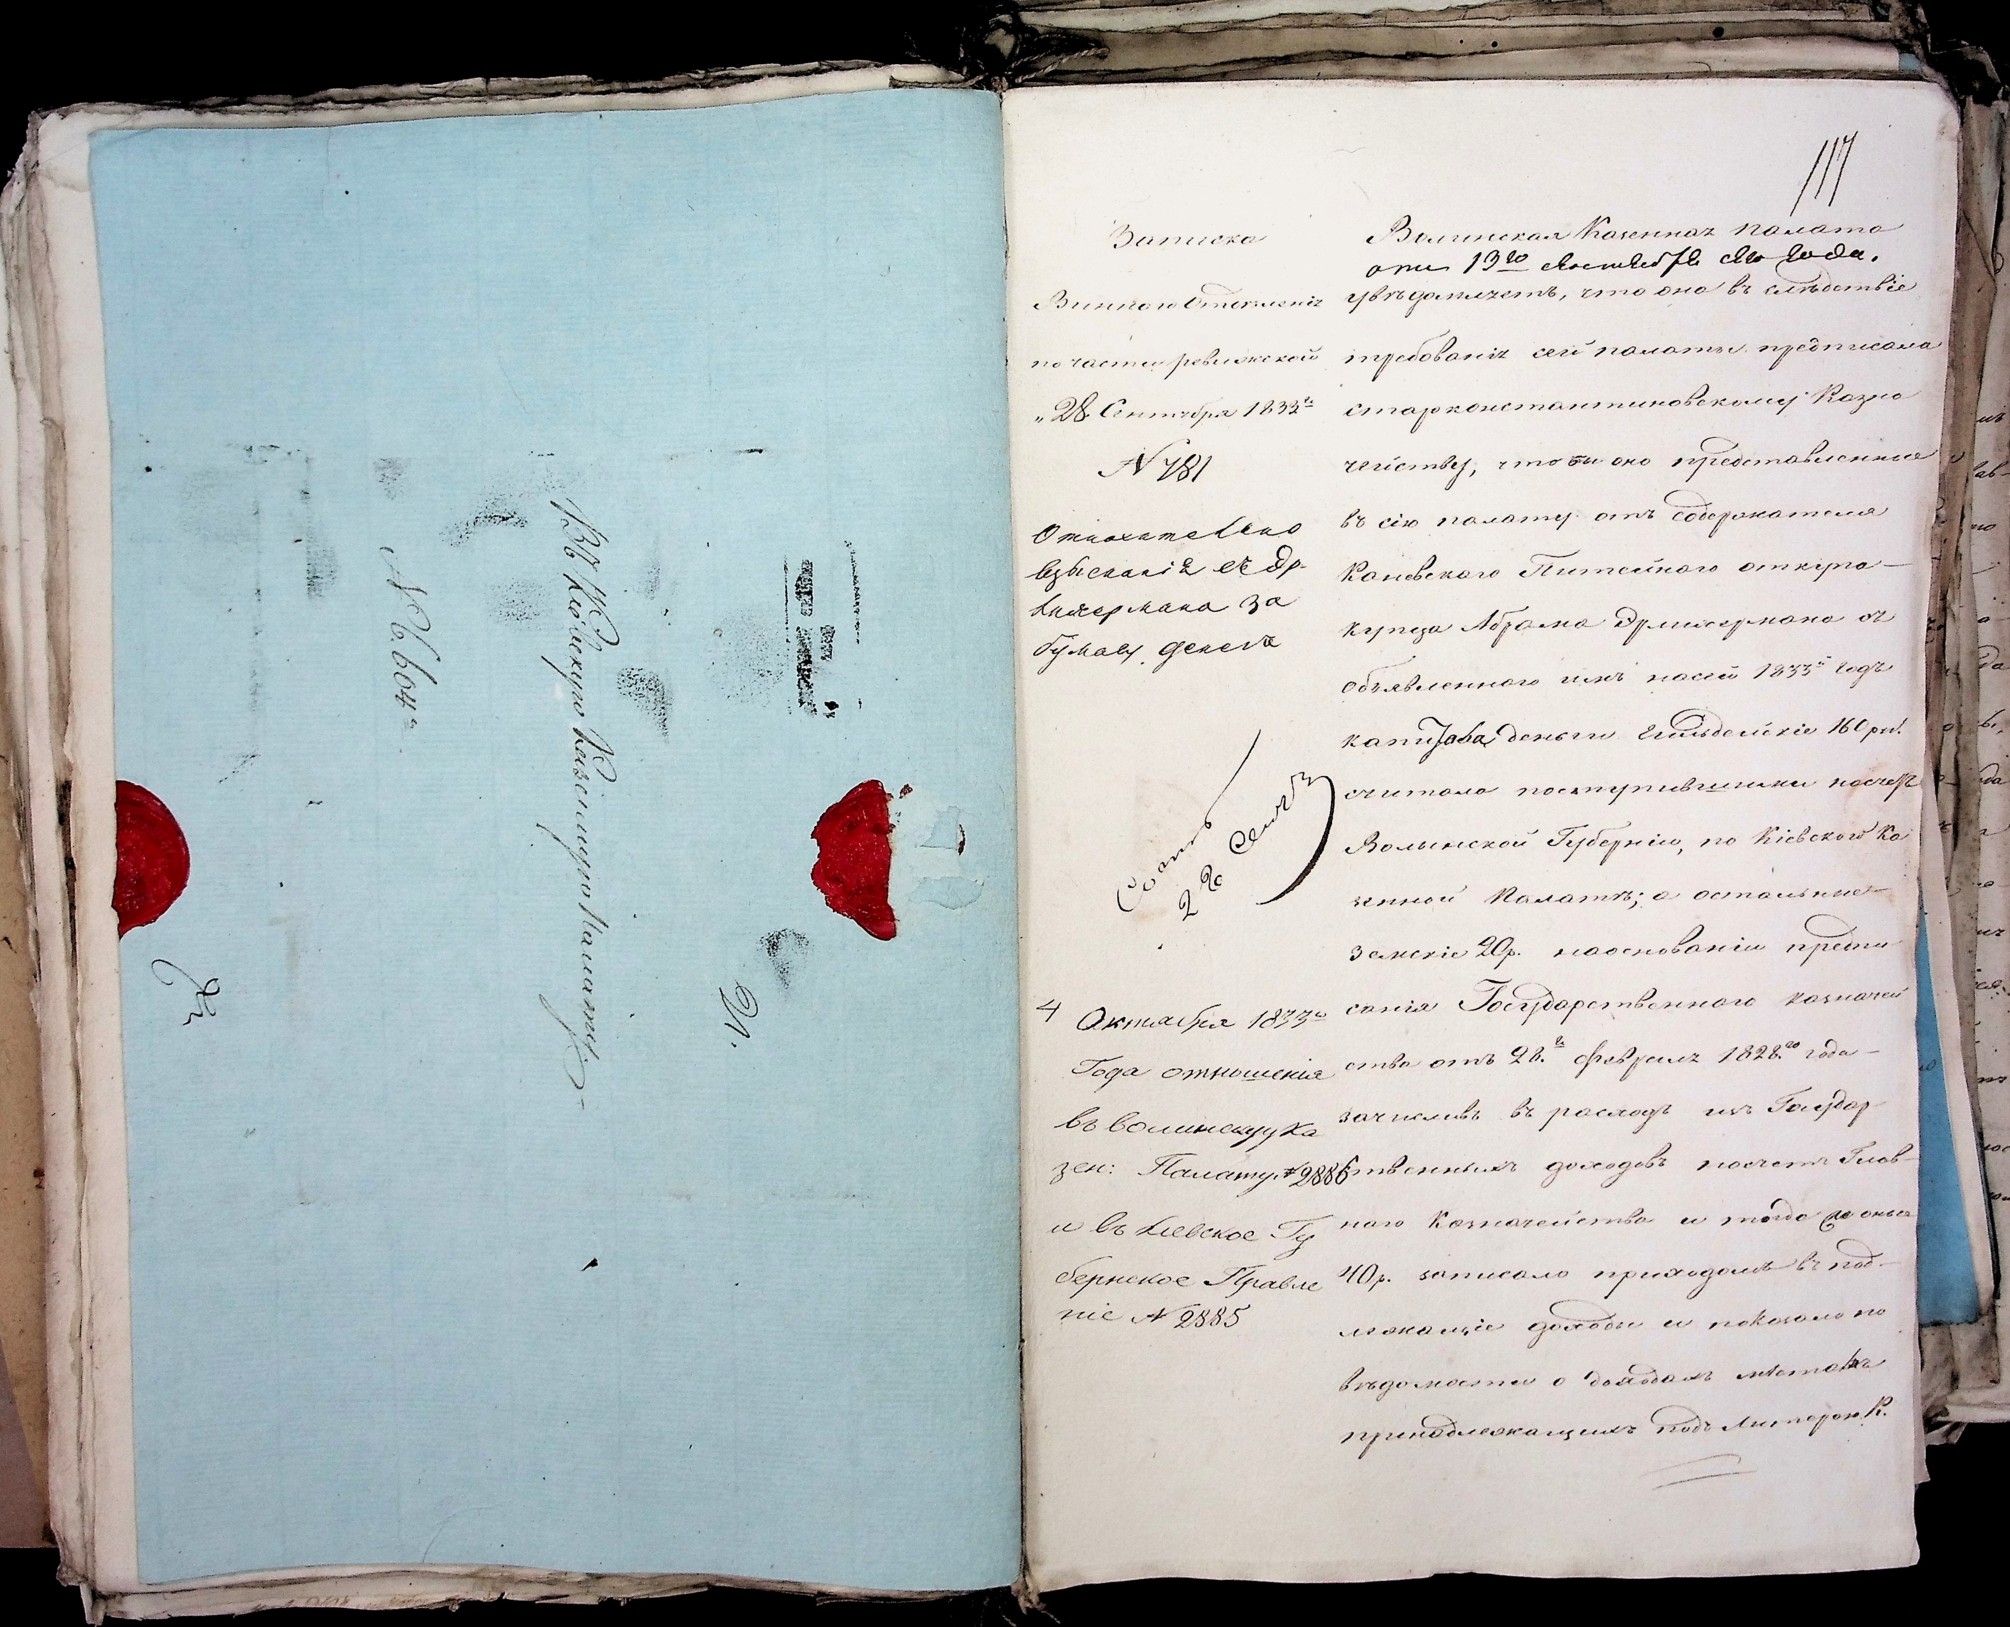 № 6604
Въ Кіевскую Казенную Палату
Д.
117
Записка
Виннаго Отделенія
по части ревижской
"28 Сентября 1833 го
№ 781
Относително
взысканія съ Др-
за
бумагу денегъ
22 Сент
4 Октября 1833 го
Года отношенія
въ Волинскую Ка
зен: Палату № 2886
и въ Киевское Гу
бернское Правле
ніе № 2885
Волинская Казенная палата
отъ 13 го сего Года.
увѣдомляетъ, что она въ слѣдствіе
требованія сей палаты предписала
старконстантиновскому Казна
чейству, что бы оно представленные
въ сію палату отъ содержателя
Каневскаго Питейнаго откупа
купца Абрама Дрлихермана съ
объявленнаго имъ насей 1833 й годъ
капитала деньги гильдейскіе 160 руб.
считало поступившими насчетъ
Волынской Губерніи, по Кіевской Ка
зенной Палатѣ; а остальные
земскіе 20р. наоснованіи предпи
санія Государственного казначей
ства отъ 28. Февраля 1828. го года
зачисливъ въ расходъ изъ Государ
ственныхъ доходовъ насчетъ Глав-
наго Казначейства и тогда оные
40р. записало приходомъ въ под-
лежащіе доходы и показало по
вѣдомости о доходахъ мѣстамъ
принадлежащихъ подъ Литерою К.